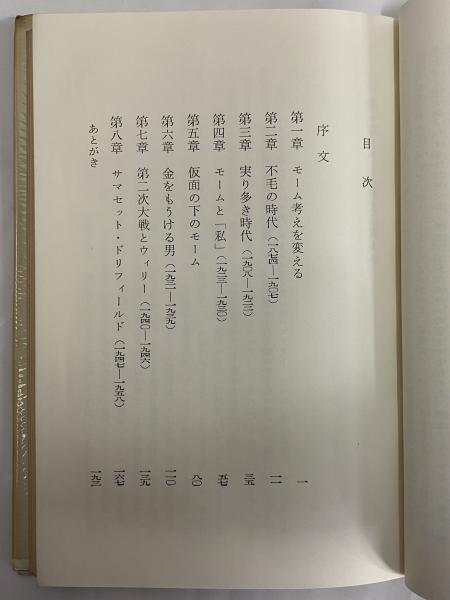 目次
序文
第一章 モーム考えを変える 一
第二章 不毛の時代(一八七四—一九〇七) 一一
第三章 実り多き時代(一九〇八—一九二二) 三五
第四章 モームと「私」(一九二三—一九三〇) 五七
第五章 仮面の下のモーム 八〇
第六章 金をもうける男(一九三一—一九三九) 一一〇
第七章 第二次大戦とウィリー(一九四〇—一九四六) 一三九
第八章 サマセット・ドリフィールド(一九四七—一九五八) 一六七
あとがき 一九三